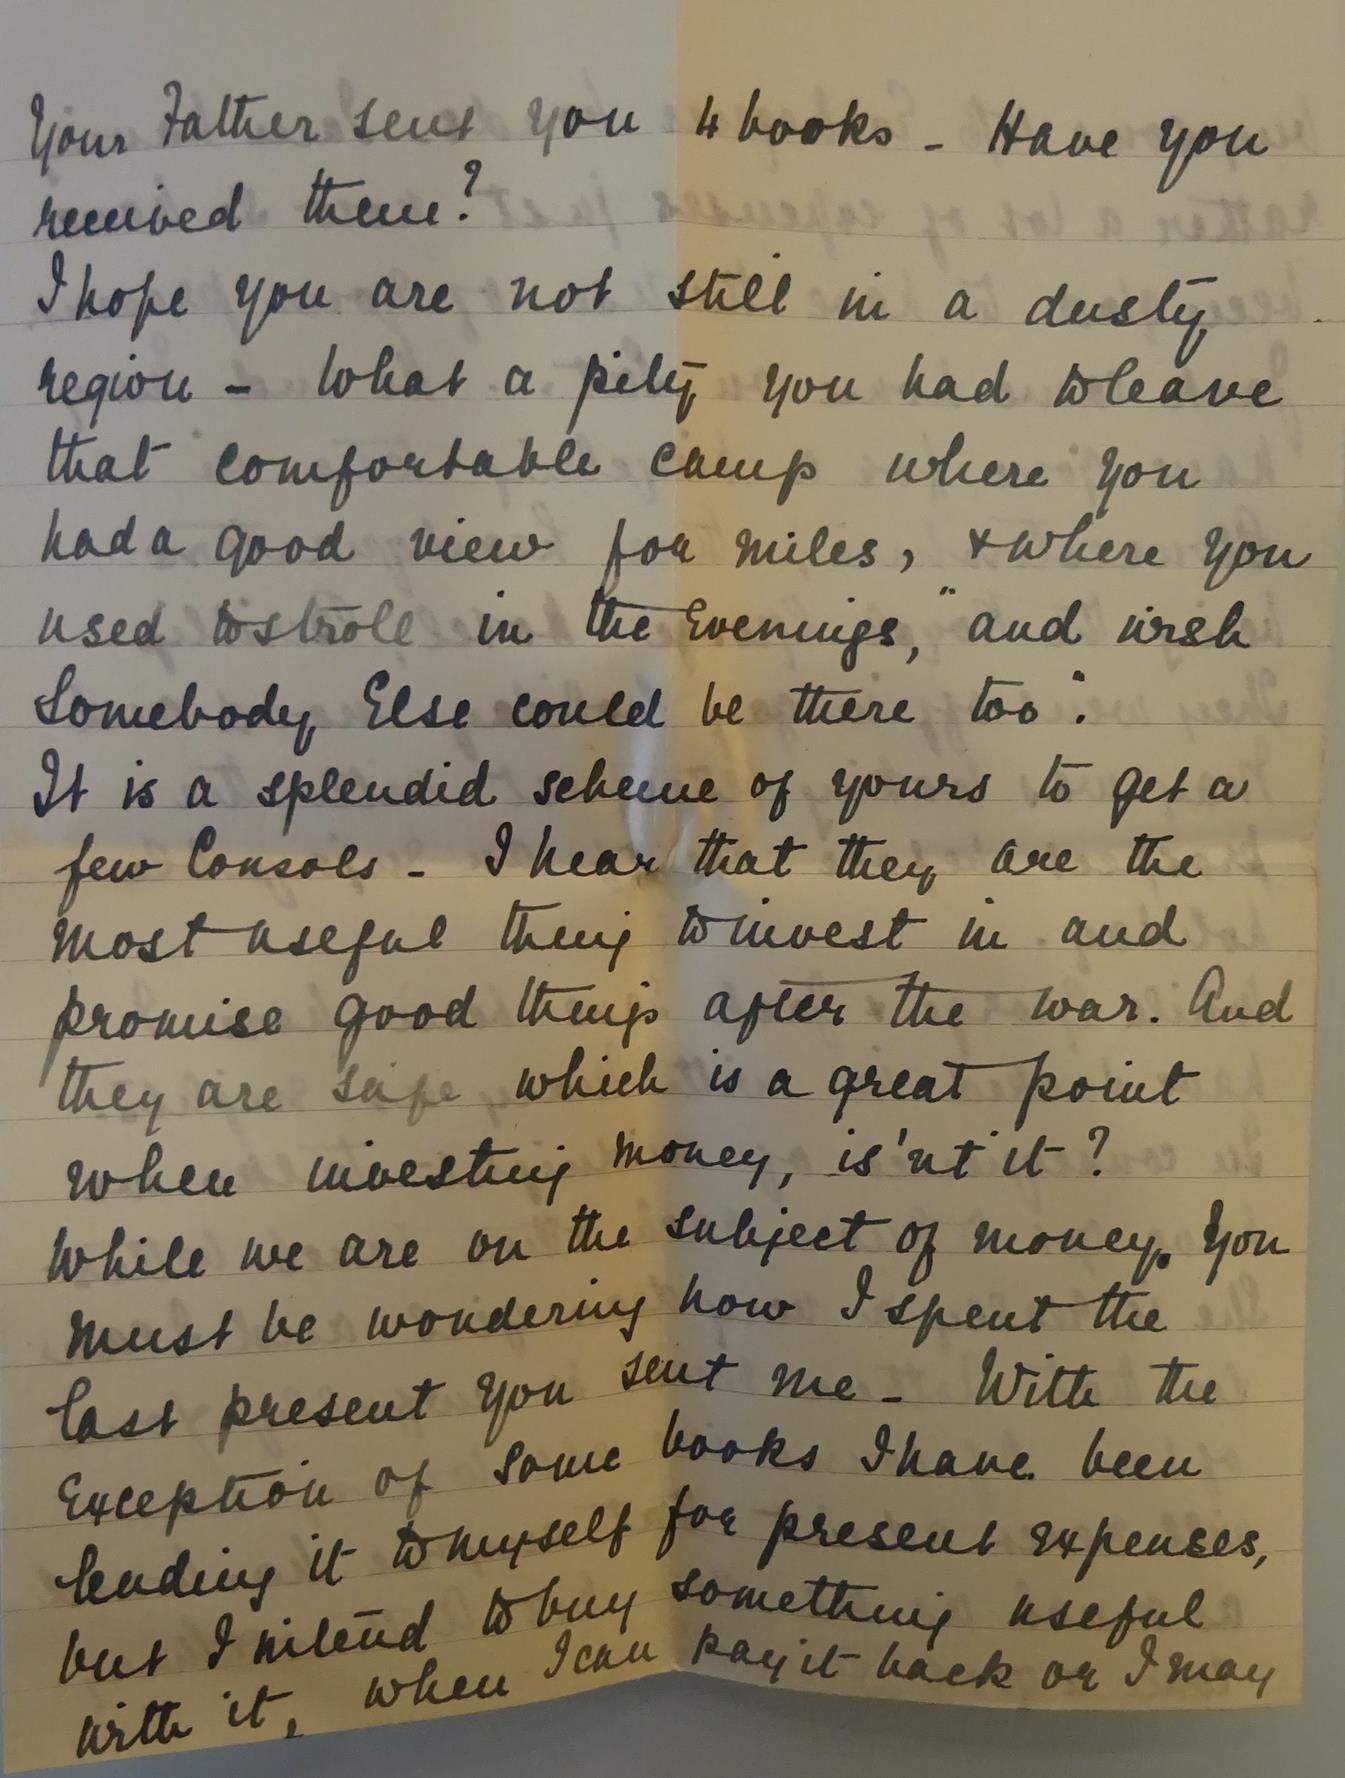 Your Father sent you 4 books - Have you
received them?
I hope you are not still in a dusty
region - What a pity you had to leave
that comfortable camp where you
had a good view for miles, & where you
used to stroll in the Evenings, "and wish
Somebody Else could be there too".
It is a splendid scheme of yours to get a
few Consols - I hear that they are the
most useful thing to invest in and
promise good things after the war. And
they are safe which is a great point
when investing money, is'nt it?
While we are on the subject of money. You
must be wondering how I spent the
last present you sent me - With the
Exception of some books I have been
lending it to myself for present expenses,
but I intend to buy something useful
with it, when I can pay it back or I may